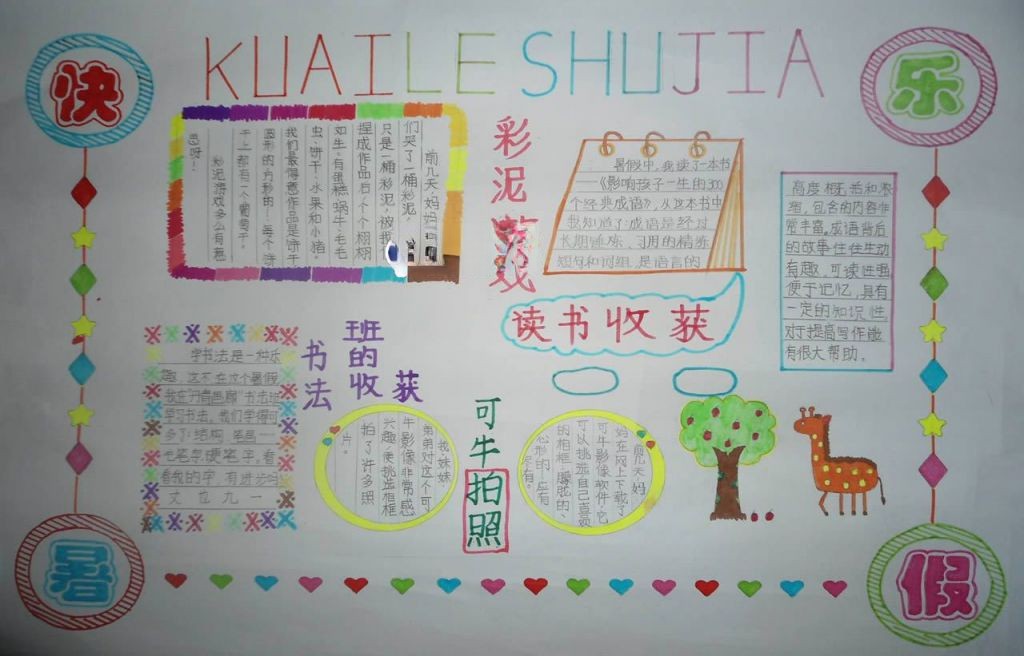 快
乐
KUAILE SHUJIA
前几天妈妈
们买了一桶彩泥。
只是一桶彩泥,被我
捏成作品后个个栩栩
如生。有蛋糕、蜗牛、毛毛
虫、饼干、水果和小猪。
我们最得意作品是饼干
圆形的、方形的!每个饼
干上都有一个葡萄干。
彩泥游戏多么有意
思呀!
彩泥
戏
暑假中,我读了一本书
——《影响孩子一生的300
个经典成语》,从这本书中
我知道了:成语是经过
长期锤炼、习用的精练
短句和词组,是语言的
高度概括和浓
缩,包含的内容非
常丰富,成语背后
的故事往往生动
有趣,可读性强
便于记忆,具有
一定的知识性,
对于提高写作能
有很大帮助。
读书收获
书法
班的收获
学书法是一种乐
趣,这不在这个暑假
我在丹青画廊书法班
学习书法。我们学得可
多了:结构、笔画……
毛笔与硬笔字。看
看我的字,有进步吗
丈 也 九 一
可牛拍照
我妹妹
弟弟对这个可
牛影像非常感
兴趣,使挑选相框
拍了许多照
片。
前几天妈
妈在网上下载了
可牛影像软件,它
可以挑选自己喜欢
的相框,朦胧的、
心形的……应有
尽有。
暑
假